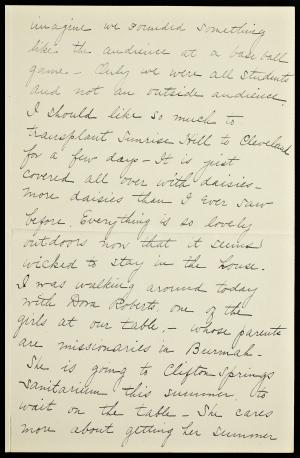 imagine we sounded something
like the audience at a base ball
game - Only we were all students
and not an outside audience.
I should like so much to
transplant Sunrise Hill to Cleveland
for a few days - It is just
covered all over with daisies -
more daisies than I ever saw
before. Everything is so lovely
outdoors now that it seems
wicked to stay in the house.
I was walking around today
with Dora Roberts, one of the
girls at our table, - whose parents
are missionaries in Burmah -
She is going to Clifton Springs
Sanitarium this summer, to
wait on the table - She cares
more about getting her summer